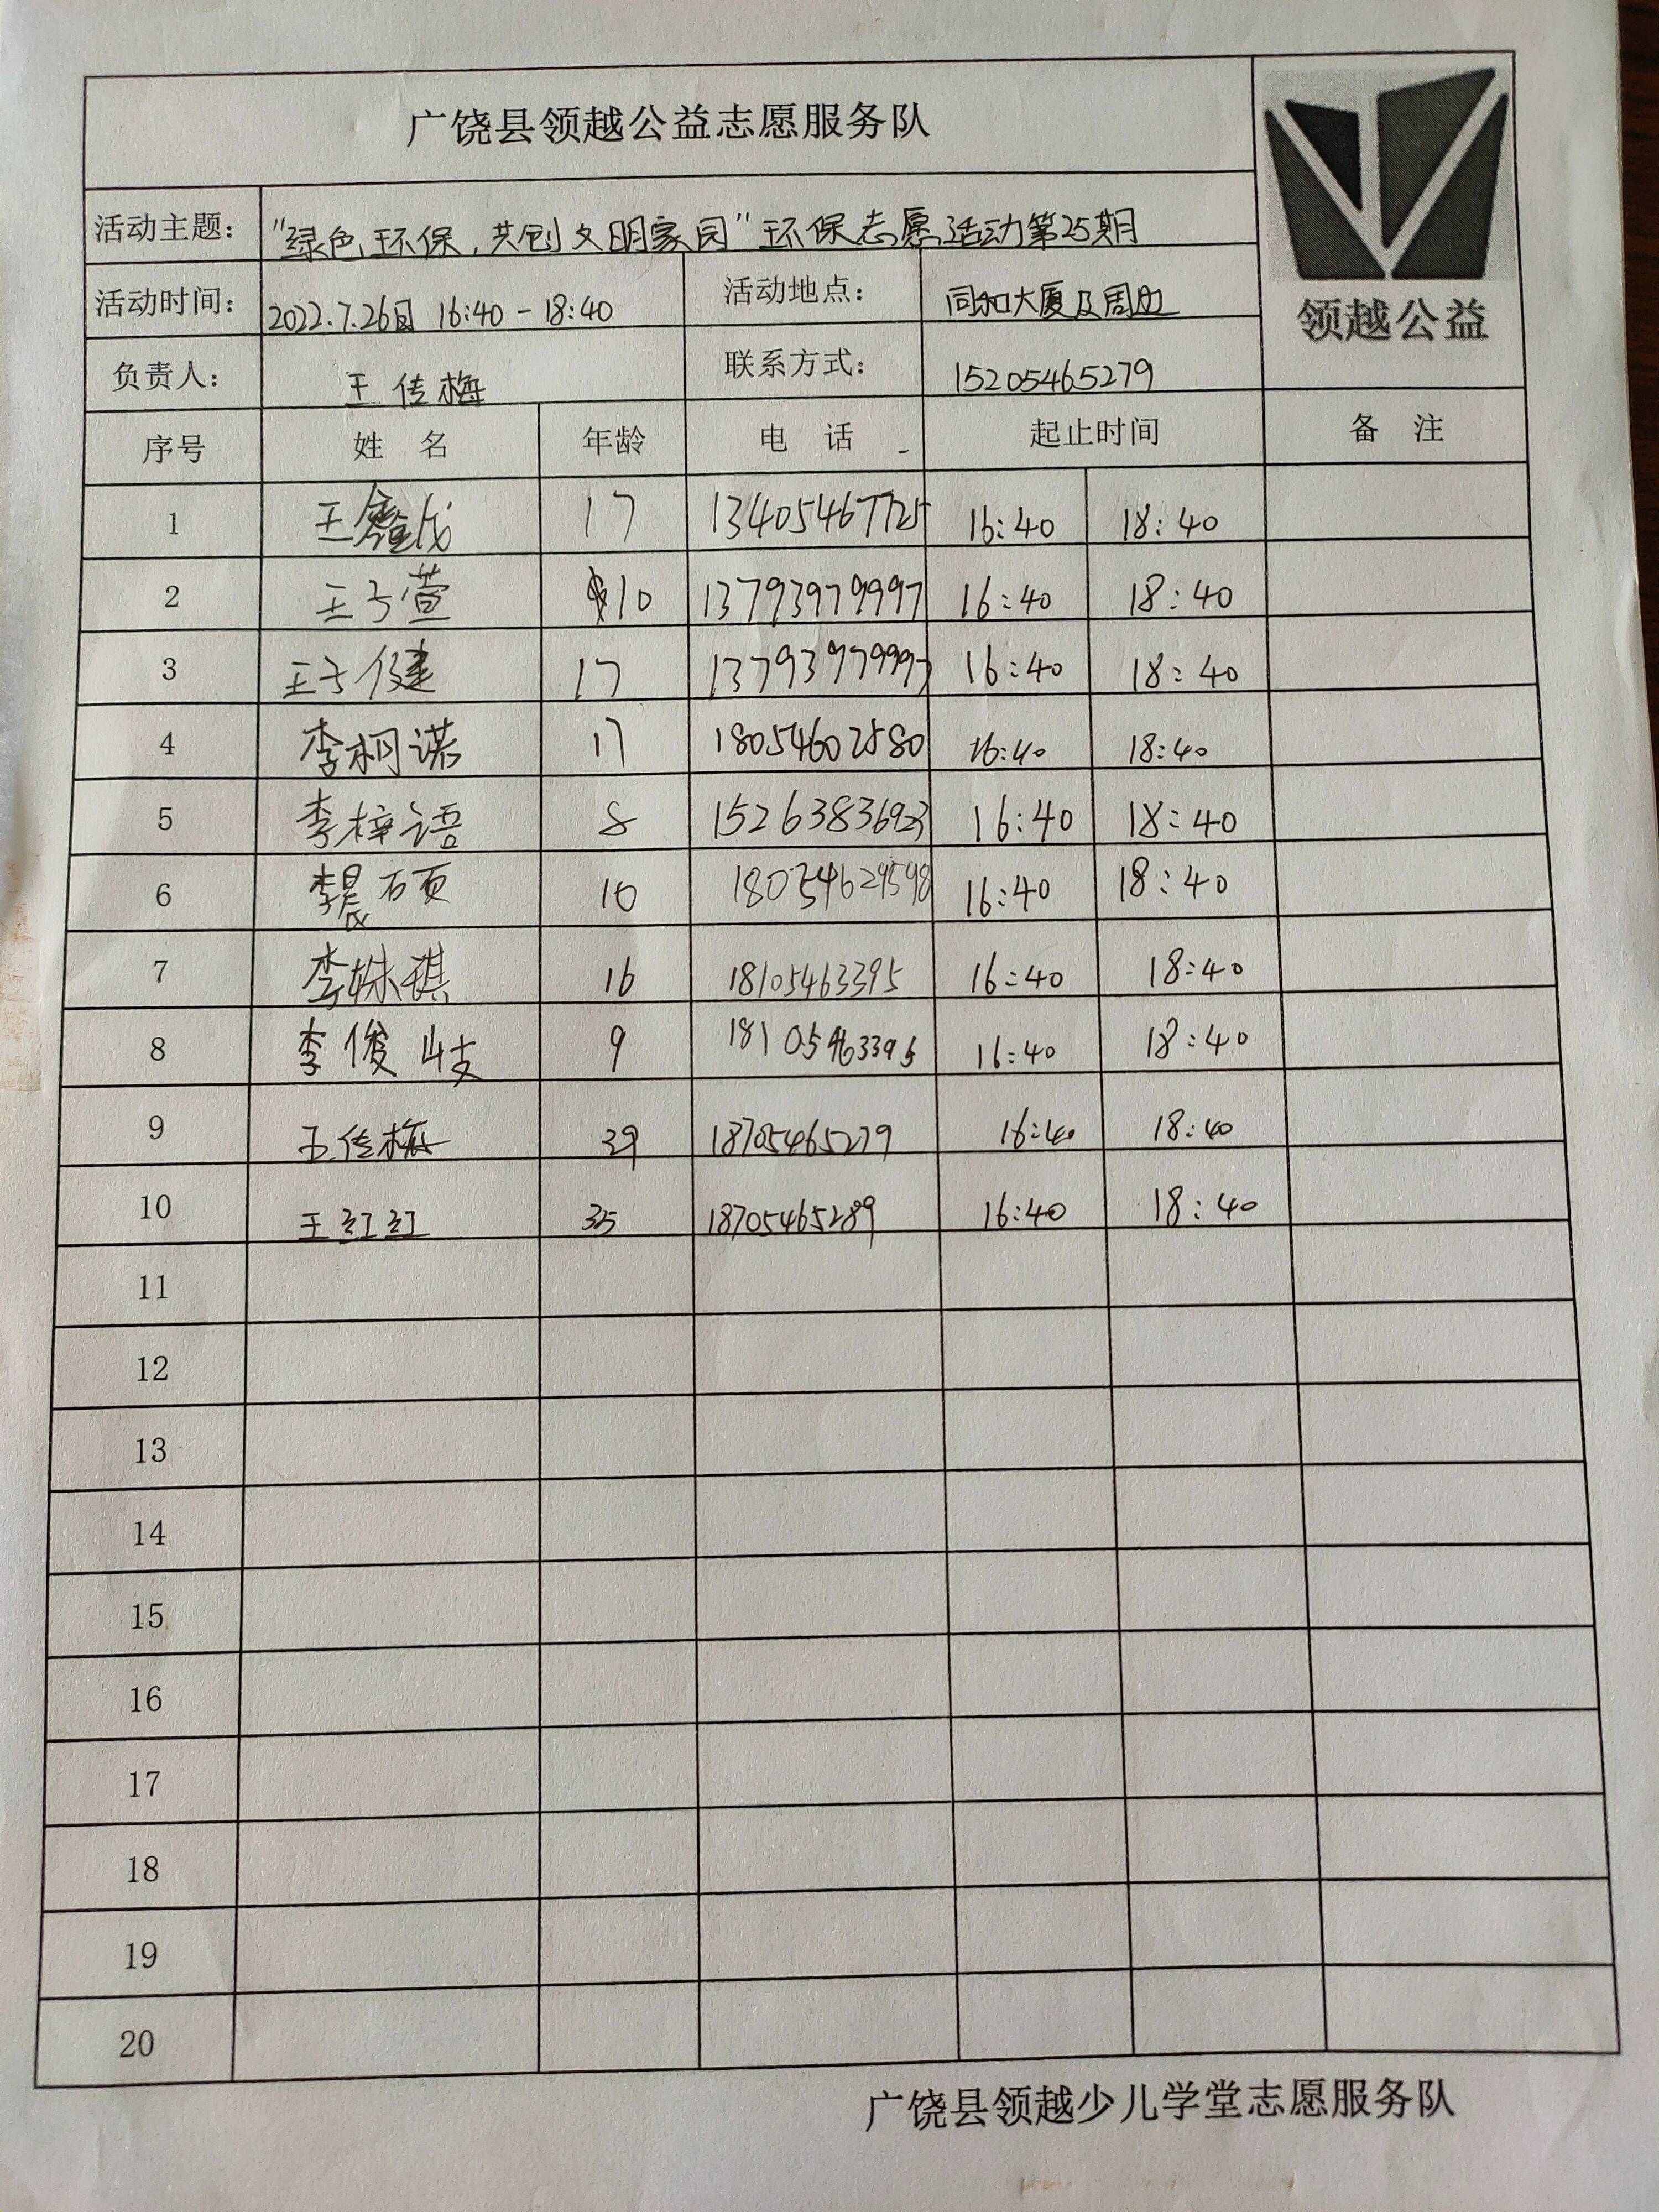 广饶县领越公益志愿服务队
领越公益
活动主题： "绿色环保，共创文明家园"环保志愿活动第25期
活动时间： 2022.7.26日 16:40-18:40 活动地点： 同和大厦及周边
负责人： 王传梅 联系方式： 15205465279
序号 姓 名 年龄 电 话 起止时间 备 注
1 王鑫成 17 13405467725 16:40 18:40
2 王子萱 10 13793979997 16:40 18:40
3 王子健 17 13793979997 16:40 18:40
4 李桐诺 17 18054602580 16:40 18:40
5 李梓语 8 15263836923 16:40 18:40
6 李晨硕 10 18054629598 16:40 18:40
7 李姝琪 16 18105463395 16:40 18:40
8 李俊岐 9 18105463395 16:40 18:40
9 王传梅 39 18705465279 16:40 18:40
10 王红红 35 18705465289 16:40 18:40
11
12
13
14
15
16
17
18
19
20
广饶县领越少儿学堂志愿服务队